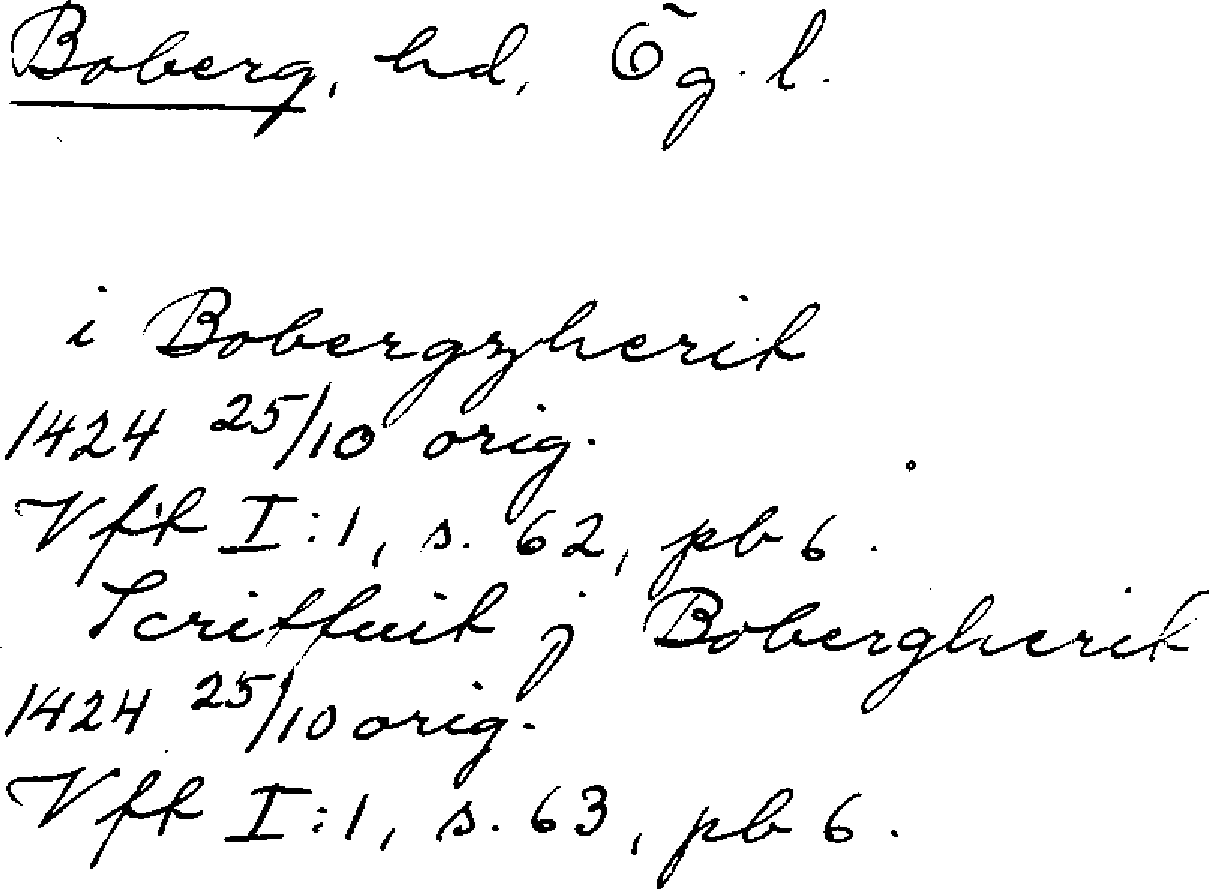 Boberg, hd, Ög. l.
i Bobergzherik
1424 25/10 orig.
Vfk I:1, s. 62, pb 6.
j Bobergherik
1424 25/10 orig.
Vfk I:1, s. 63, pb 6.